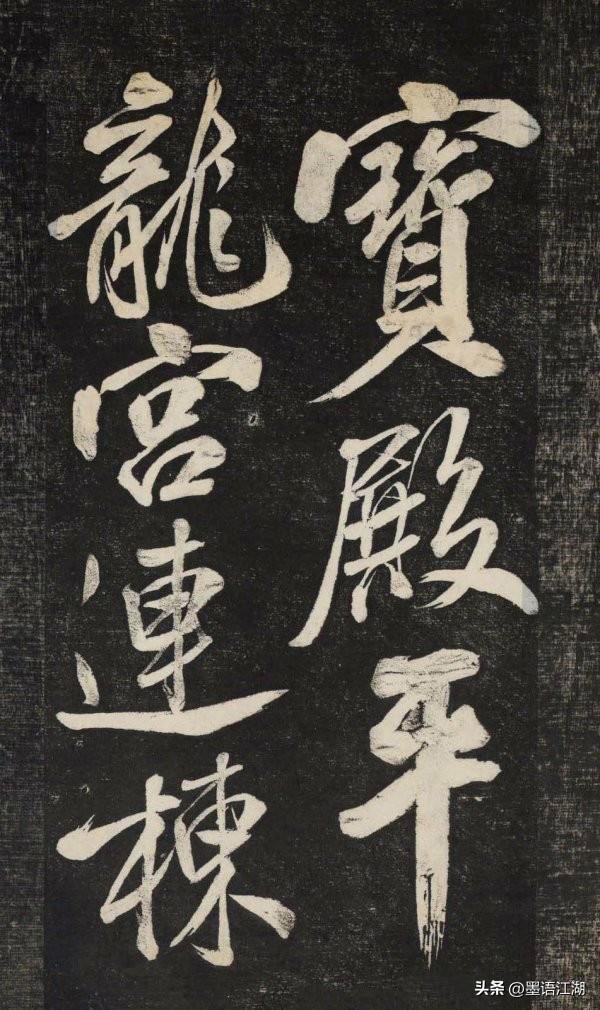 寶殿平
龍宮連棟
头条 @墨语江湖